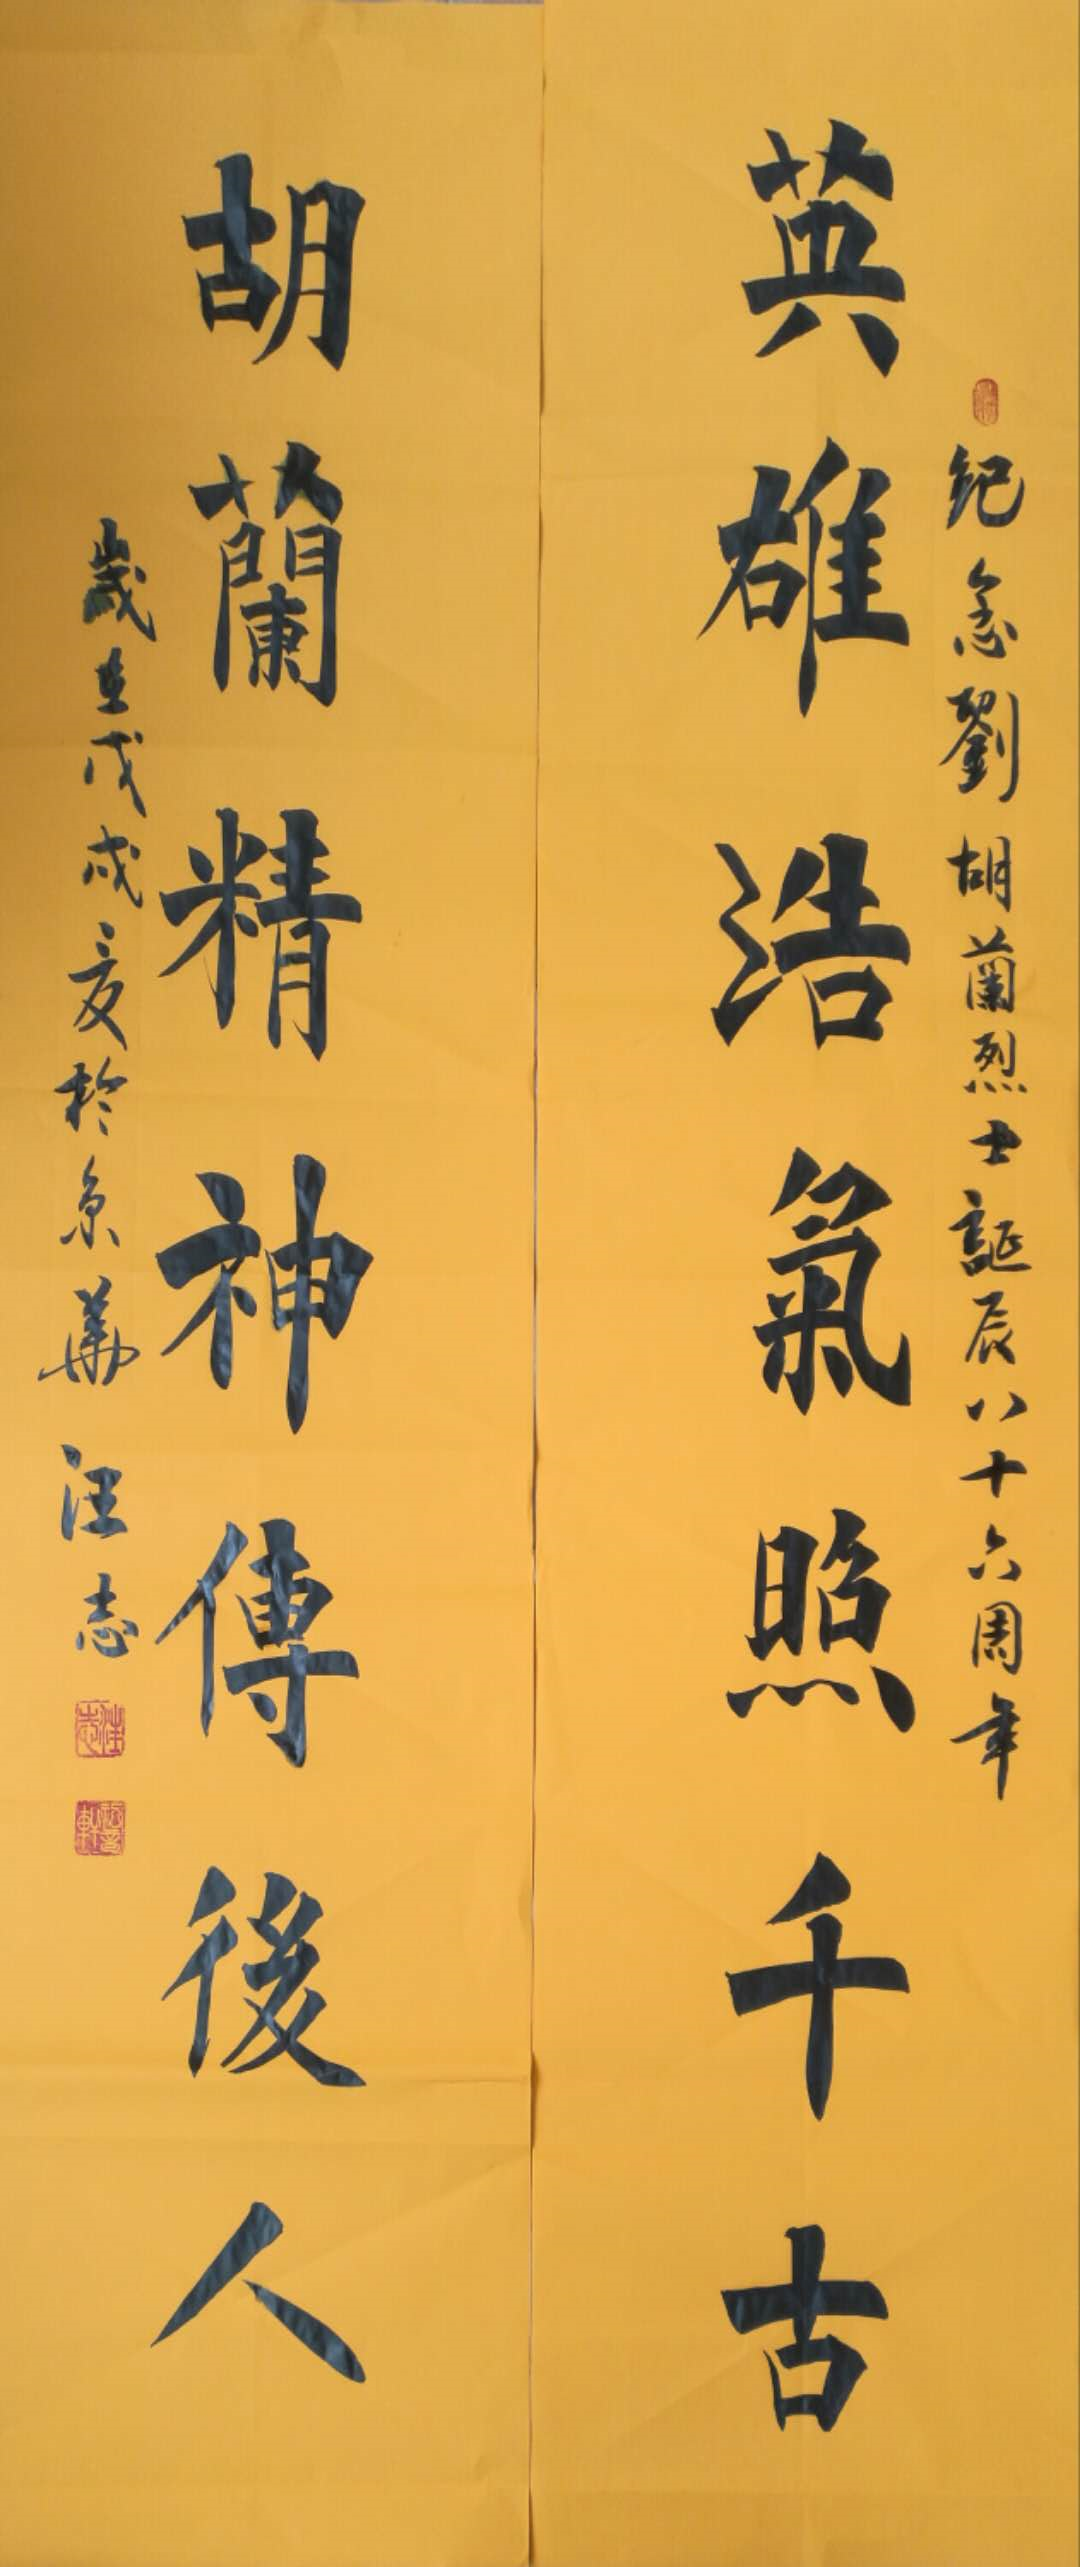 紀念劉胡蘭烈士誕辰八十六周年
英雄浩氣照千古
胡蘭精神傳後人
歲在戊戌夏於京華
汪志
汪志